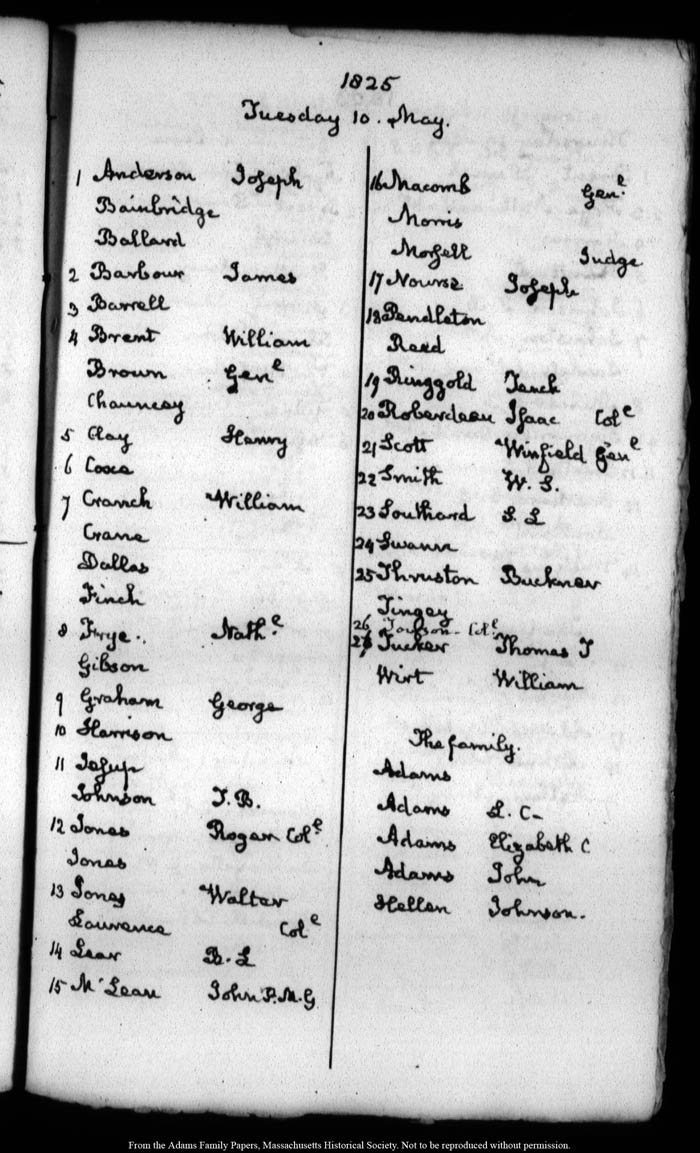 1825
Tuesday 10. May.
1 Anderson Joseph
Bainbridge
Ballard
2 Barbour James
3 Barrell
4 Brent William
Brown Gen.l
Chauncey
5 Clay Henry
6 Coxe
7 Cranch William
Crane
Dallas
Finch
8 Frye. Nath.l
Gibson
9 Graham George
10 Harrison
11 Jesup
Johnson J. B.
12 Jones Roger Col.l
Jones
13 Jones Walter
Laurence Col.l
14 Lear B. L
15 McLean John P. M. G
16 Macomb Gen.l
Morris
Morsell Judge
17 Nourse Joseph
18 Pendleton
Read
19 Ringgold Tench
20 Roberdeau Isaac Col.l
21 Scott Winfield Gen.l
22 Smith W. S.
23 Southard S. L
24 Swann
25 Thruston Buckner
Tingey
26 Towson Col.l
27 Tucker Thomas T
Wirt William
The family.
Adams
Adams L. C-
Adams Elizabeth C
Adams John
Hellen Johnson.
From the Adams Family Papers, Massachusetts Historical Society. Not to be reproduced without permission.